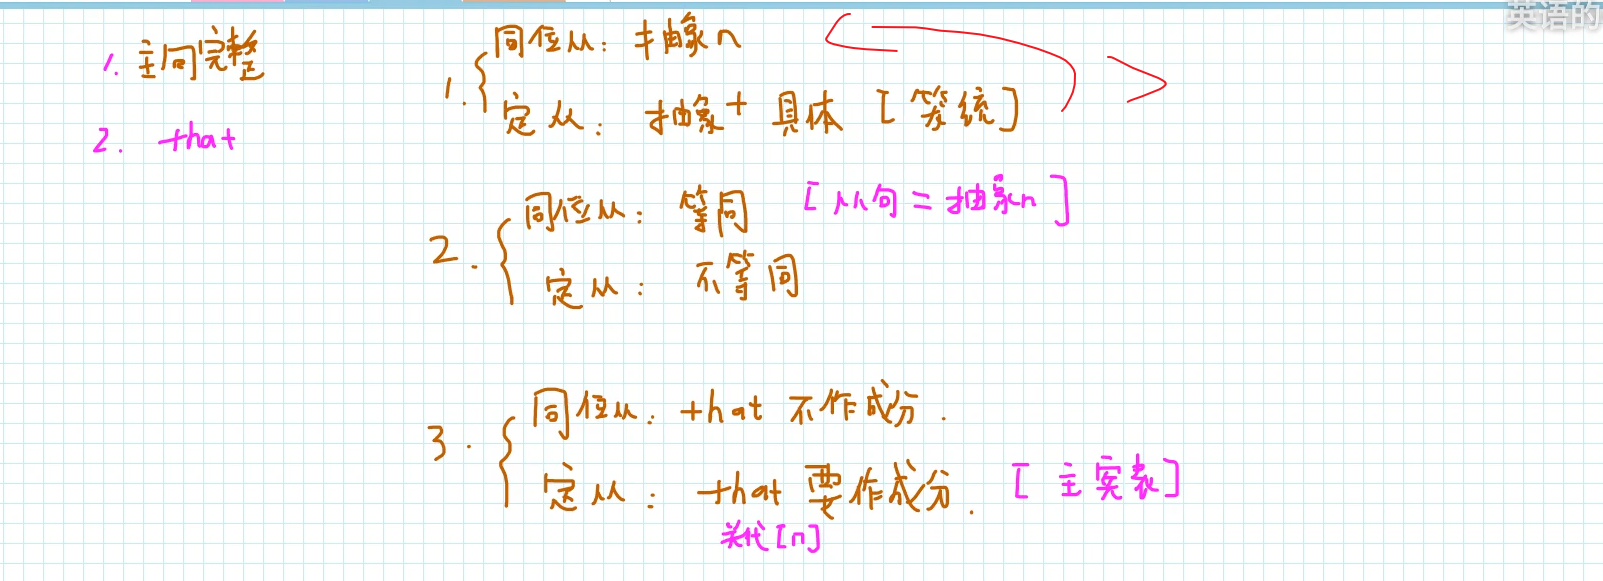 英语的
1. 主句完整
2. that
1. { 同位从: 抽象n
定从: 抽象+具体 [笼统]
2. { 同位从: 等同 [从句=抽象n]
定从: 不等同
3. { 同位从: that 不作成分.
定从: that 要作成分. [主宾表]
关代[n]